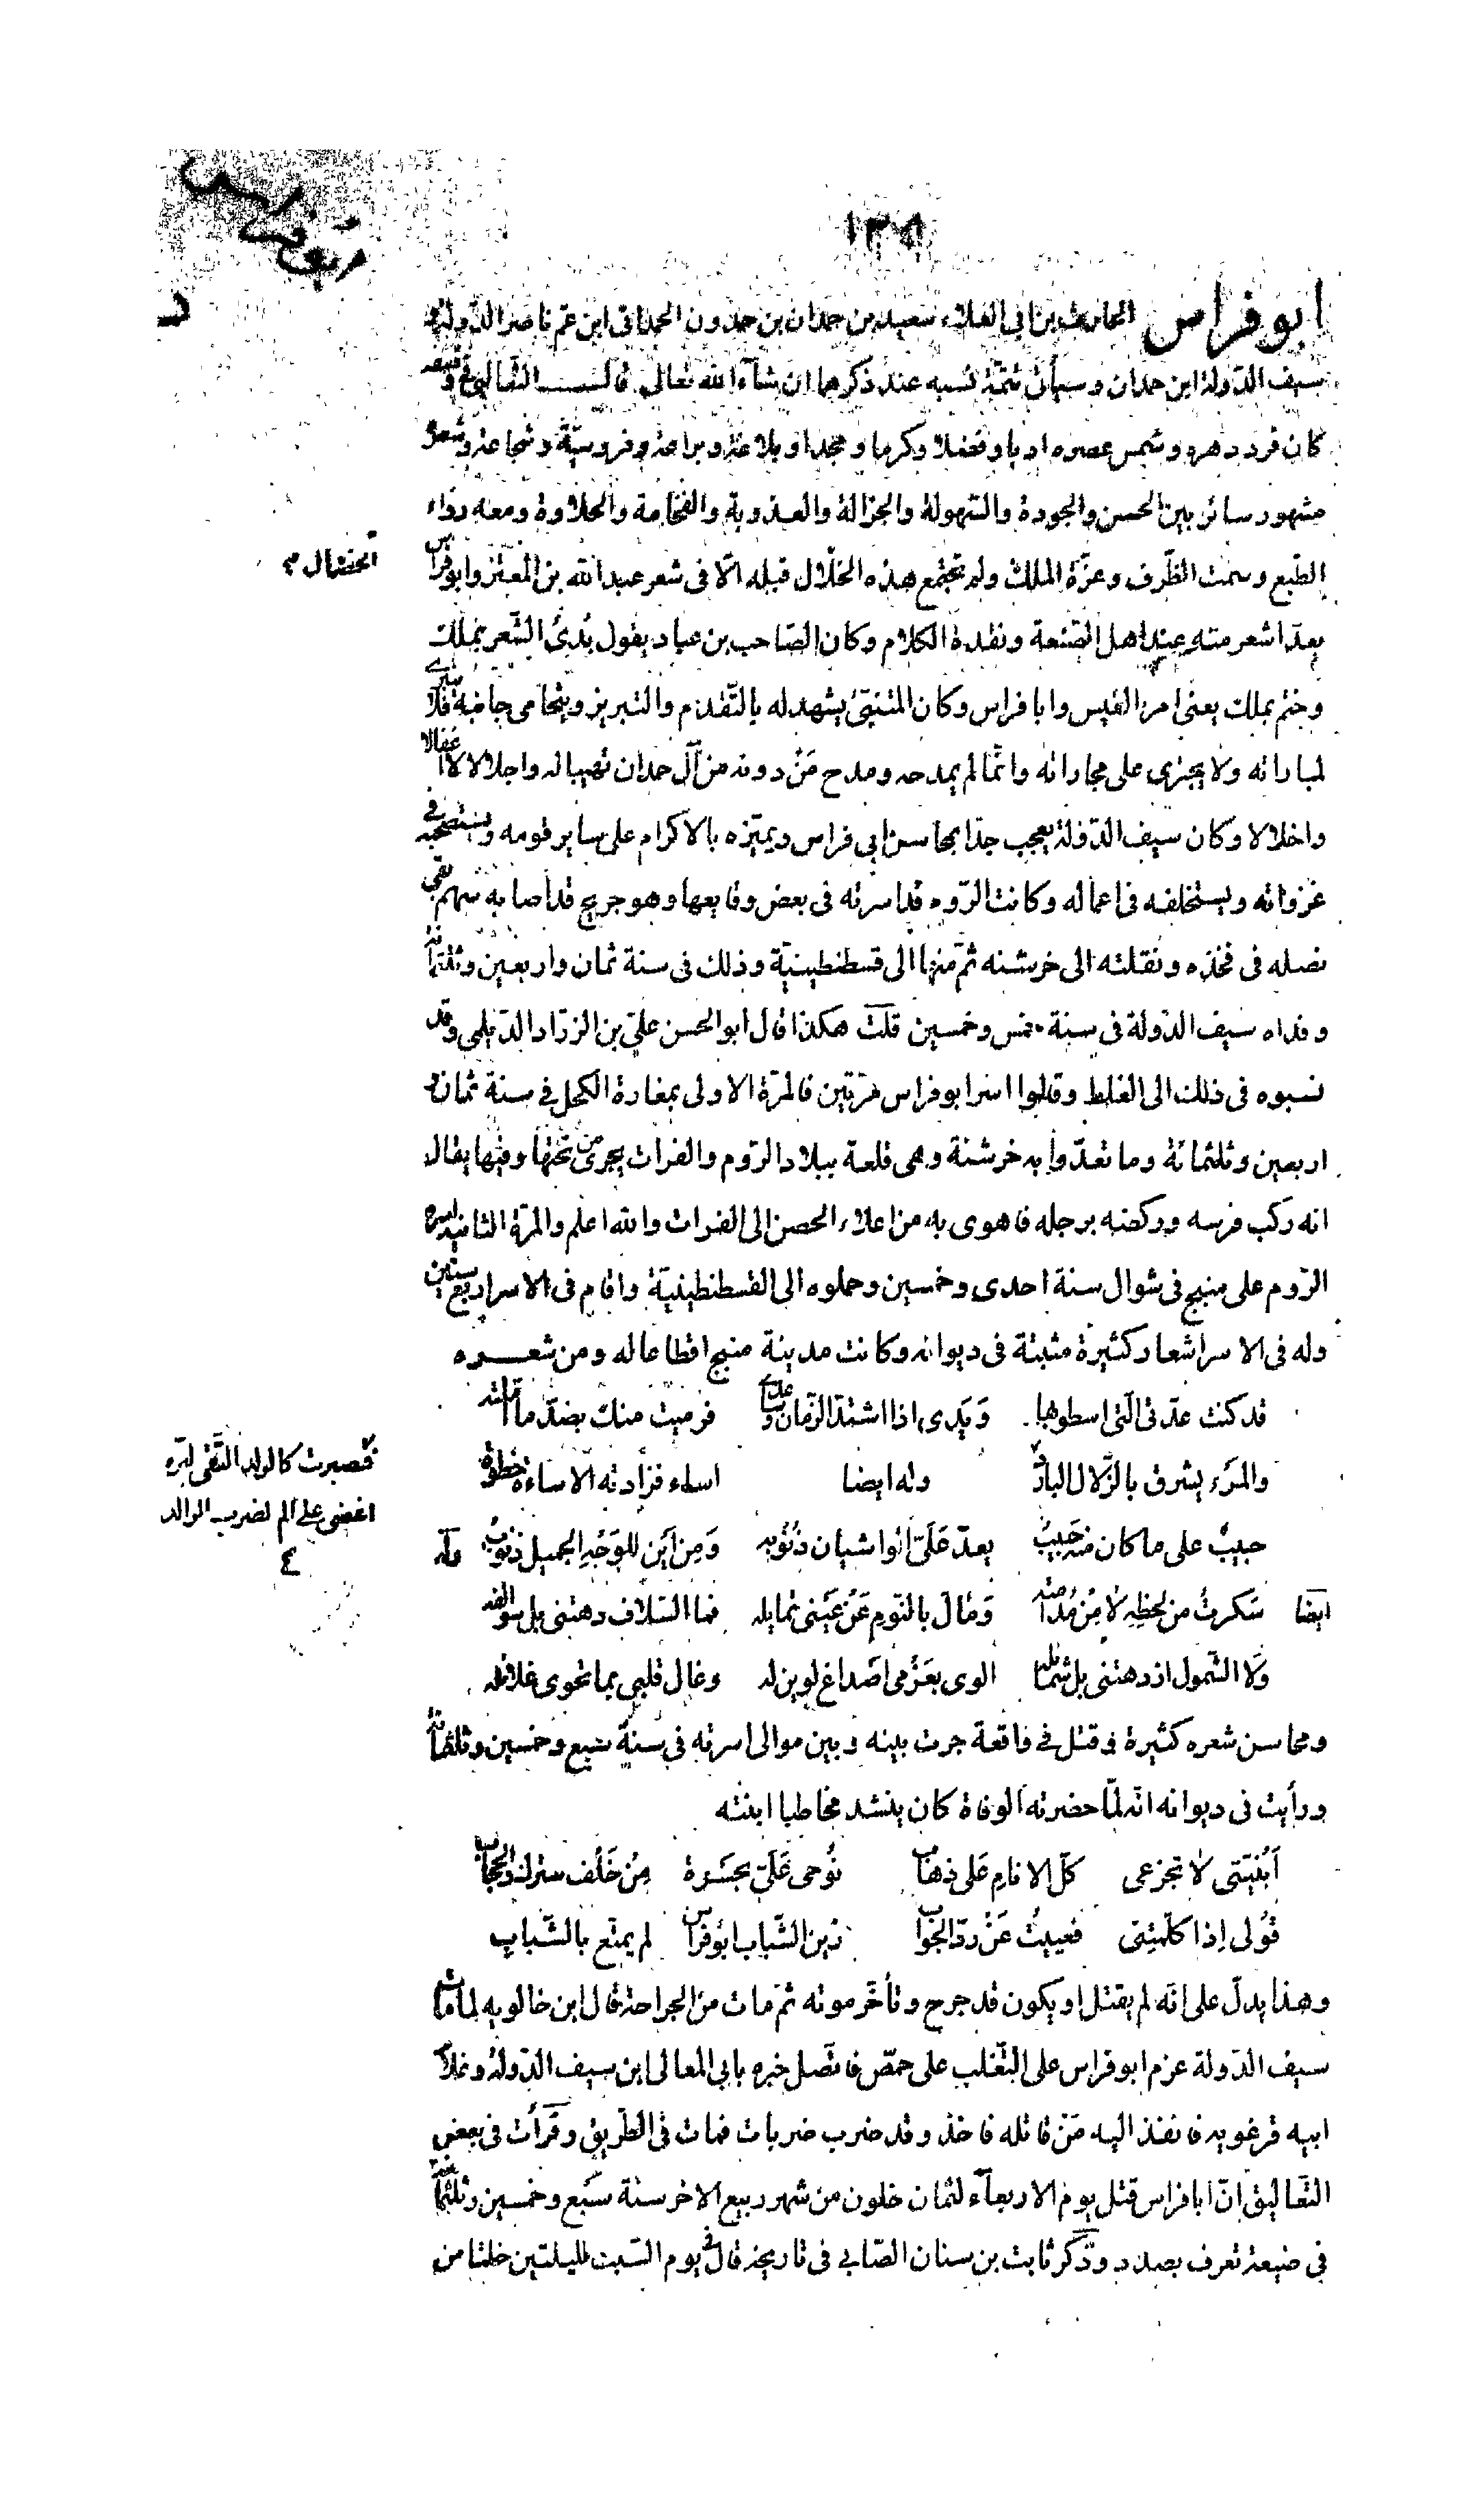 ١٣٨
ابو فراس الحارث بن ابى العلاء سعيد بن حمدان بن حمدون الحمدانى ابن عم ناصر الدّولة و
سيف الدّولة ابن حمدان وسيأتى تتمّة نسبه عند ذكرهما ان شآء الله تعالى قال الثعالبى فى وصفه
كان فرد دهره وشمس عصره ادبا وفضلا وكرما ومجدا وبلاغة وبراعة وفروسيّة وشجاعة وشعره
مشهور سائر بين الحسن والجودة والسّهولة والجزالة والعذوبة والفخامة والحلاوة ومعه رواء
الطّبع وسمت الظّرف وعزّة الملك ولم تجتمع هذه الخلال قبله الّا فى شعر عبد الله بن المعتز وابو فراس
الخصال
يعدّ اشعر منه عند اهل الصّنعة ونقدة الكلام وكان الصّاحب بن عباد يقول بُدئ الشّعر بملك
وختم بملك يعنى امرء القيس وابا فراس وكان المتنبّئ يشهد له بالتّقدّم والتبريز ويتحامى جانبه فلا ينبرى
لمباراته ولا يجترى على مجاراته وانّما لم يمدحه ومدح مَنْ دونه من آل حمدان تهيبا له واجلالا لا اغفالا
واخلالا وكان سيف الدّولة يعجب جدّا بمحاسن ابى فراس ويميّزه بالاكرام على ساير قومه ويستصحبه فى
غزواته ويستخلفه فى اعماله وكانت الرّوم قد اسرته فى بعض وقايعها وهو جريح قد اصابه سهم بقى
نصله فى فخذه ونقلته الى خرشنه ثمّ منها الى قسطنطينيّة وذلك فى سنة ثمان واربعين وثلثمائة
وفداه سيف الدّولة فى سنة خمس وخمسين قلت هكذا قال ابو الحسن علىّ بن الزرّاد الدّيلمى وقد
نسبوه فى ذلك الى الغلط وقالوا اسر ابو فراس مرّتين فالمرّة الاولى بمغارة الكحل فى سنة ثمان و
اربعين وثلثمائة وما تعدّوا به خرشنة وهى قلعة ببلاد الرّوم والفرات يجرى من تحتها وفيها يقال
انه ركب فرسه وركضه برجله فاهوى به من اعلاء الحصن الى الفرات والله اعلم والمرّة الثانية اسره
الرّوم على منبج فى شوال سنة احدى وخمسين وحملوه الى القسطنطينيّة واقام فى الاسر اربع سنين
وله فى الاسر اشعار كثيرة مثبتة فى ديوانه وكانت مدينة منبج اقطاعا له ومن شعره
قد كنت عدّتى الّتى اسطو بها وَيَدى اذا اشتدّ الزّمان وساعدى فرميت منك بضدّ ما امّلته
فصبرت كالولد التّقى لبرّه
اغضى على الم لضرب الوالد
والمرء يشرق بالزّلال البارد وله ايضا اساء فزادته الاساءة حظوة
حبيبٌ على ما كان منه حَبيبُ يعدّ عَلَىَّ الواشيان ذُنُوبه وَمِن اَين للوَجْهِ الجميل ذنُوبُ وله
ايضا سَكرتُ من لحظِهِ لا مِنْ مُدامته وَمَالَ بالنّومِ عَنْ عَيْنى تمايله فما السّلاف دهتنى بل سوالفه
وَلا الشّمول ازدهتنى بل شمائله الوى بعَزْمى اَصْداغ لوين له وغال قلبى بما تحوى غلائله
ومحاسن شعره كثيرة وقتل فى واقعة جرت بينه وبين موالى اسرته فى سنة سَبع وخمسين وثلثمائة
ورأيت فى ديوانه انّه لمّا حضرته الوفاة كان ينشد مخاطبا ابنته
اَبُنيّتى لا تجزعى كلّ الانامِ عَلى ذهاب نُوحى عَلَىّ بحَسَرة مِنْ خَلْف سترك والحجاب
قُولى اِذا كلّمتِنِى فعييتُ عَنْ ردّ الجواب زَين الشّباب ابُو فراس لم يمتع بالشّباب
وهذا يدلّ على انّه لم يقتل او يكون قد جرح وتأخّر موته ثمّ مات من الجراحة قال ابن خالويه لما مات
سيف الدّولة عزم ابو فراس على التّغلب على حمص فاتّصل خبره بابى المعالى ابن سيف الدّولة وغلام
ابيه قرغويه فانفذ اليه مَنْ قاتله فاخذ وقد ضرب ضربات فمات فى الطّريق وقرأت فى بعض
التّعاليق انّ ابا فراس قتل يوم الاربعآء لثمان خلون من شهر ربيع الاخر سنة سَبع وخمسين وثلثمائة
فى ضيعة تعرف بصدد وذكر ثابت بن سنان الصّابى فى تاريخه قال فى يوم السّبت لليلتين خلتا من